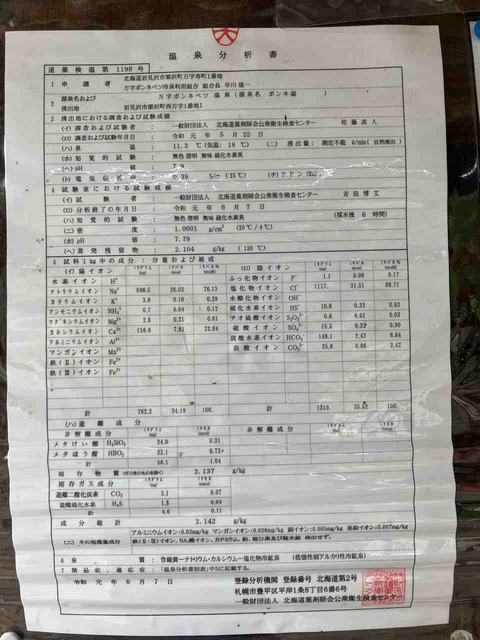 温泉分析書
道薬検温第 1198 号
1 申請者 北海道岩見沢市栗沢町万字寿町1番地
万字ポンネベツ冷泉利用組合 組合長 早川 雄一
2 源泉名および湧出地 万字ポンネベツ 温泉 (源泉名 ポンネ湯 )
岩見沢市栗沢町西万字1番地1
3 湧出地における調査および試験成績
(イ) 調査および試験者 : 一般財団法人 北海道薬剤師会公衆衛生検査センター 佐藤直人
(ロ) 調査および試験年月日 : 令和 元年 5月 22日
(ハ) 泉温 : 11.3 ℃(気温: 18 ℃) (ニ) 湧出量: 測定不能 ℓ/min(自然湧出)
(ホ) 知覚的試験 : 無色 澄明 無味 硫化水素臭
(ヘ) pH : 7.9
(ト) 電気伝導率 : 0.39 S/m (25℃) (チ)ラドン(Rn) :
4 試験室における試験成績
(イ) 試験者 : 一般財団法人 北海道薬剤師会公衆衛生検査センター 吉田博文
(ロ) 分析終了の年月日 : 令和 元年 6月 7日
(ハ) 知覚的試験 : 無色 澄明 無味 硫化水素臭 (採水後 6 時間)
(ニ) 密度 : 1.0001 g/cm³ (20℃/4℃)
(ホ) pH : 7.79
(ヘ) 蒸発残留物 : 2.104 g/kg (110 ℃)
5 試料1kg中の成分: 分量および組成
(イ) 陽イオン ミリグラム (mg) ミリバル (mval) ミリバル%
水素イオン H⁺
ナトリウムイオン Na⁺ 598.5 26.03 76.13
カリウムイオン K⁺ 3.8 0.10 0.29
アンモニウムイオン NH₄⁺ 0.7 0.04 0.12
マグネシウムイオン Mg²⁺ 2.6 0.21 0.61
カルシウムイオン Ca²⁺ 156.6 7.81 22.84
アルミニウムイオン Al³⁺
マンガンイオン Mn²⁺
鉄(Ⅱ)イオン Fe²⁺
鉄(Ⅲ)イオン Fe³⁺
計 762.2 34.19 100.
(ロ) 陰イオン ミリグラム (mg) ミリバル (mval) ミリバル%
ふっ化物イオン F⁻ 1.1 0.06 0.17
塩化物イオン Cl⁻ 1117. 31.51 88.71
水酸化物イオン OH⁻
硫化水素イオン HS⁻ 10.8 0.33 0.93
チオ硫酸イオン S₂O₃²⁻ 0.6 0.01 0.03
硫酸イオン SO₄²⁻ 15.5 0.32 0.90
炭酸水素イオン HCO₃⁻ 148.1 2.43 6.84
炭酸イオン CO₃²⁻ 25.8 0.86 2.42
計 1319. 35.52 100.
(ハ) 遊離成分
非解離成分 ミリグラム (mg) ミリモル (mmol)
メタけい酸 H₂SiO₃ 24.0 0.31
メタほう酸 HBO₂ 32.1 0.73
計 56.1 1.04
溶存物質(ガス性のものを除く) 2.137 g/kg
溶存ガス成分 ミリグラム (mg) ミリモル (mmol)
遊離二酸化炭素 CO₂ 3.1 0.07
遊離硫化水素 H₂S 1.5 0.04
計 4.6 0.11
成分総計 2.142 g/kg
(ニ) その他微量成分 アルミニウムイオン:0.03mg マンガンイオン:0.036mg 銅イオン:0.005mg 亜鉛イオン:0.007mg
6 泉質 : 含硫黄-ナトリウム・カルシウム-塩化物冷鉱泉 (低張性弱アルカリ性冷鉱泉)
7 禁忌症、適応症: 「温泉分析書別表」中5に記載します。
令和 元年 6月 7日
登録分析機関 登録番号 北海道第2号
札幌市豊平区平岸1条8丁目6番6号
一般財団法人 北海道薬剤師会公衆衛生検査センター